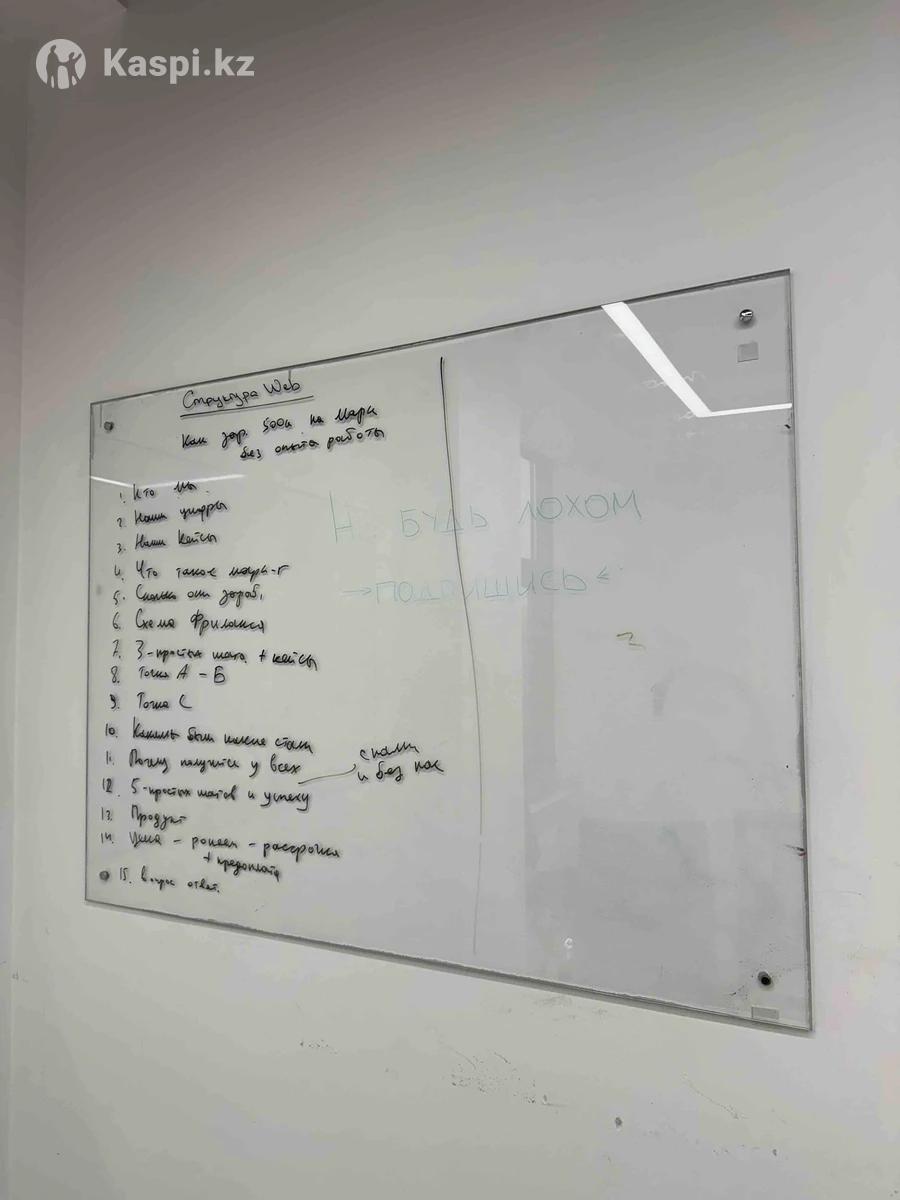 Kaspi.kz
Структура Web
Как зар. 500к на Марк
без опыта работы
1. Кто мы
2. Наши цифры
3. Наши кейсы
4. Что такое марк-г
5. Сколько он зараб.
6. Схема Фриланса
7. 3-простых шага + кейсы
8. Точка А - Б
9. Точка С
10. Какими были какие стали
11. Почему получится у всех
с нами
и без нас
12. 5-простых шагов к успеху
13. Продукт
14. Цена - - рассрочка
+ предоплата
15. Вопрос ответ.
Н. БУДЬ ЛОХОМ
→ПОДПИШИСЬ←